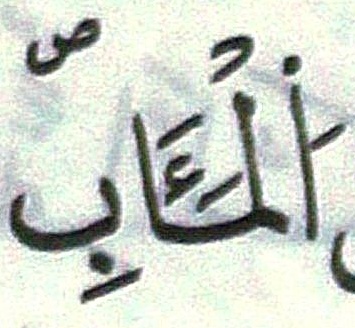 اُ۬لْمَـَٔابِۖ